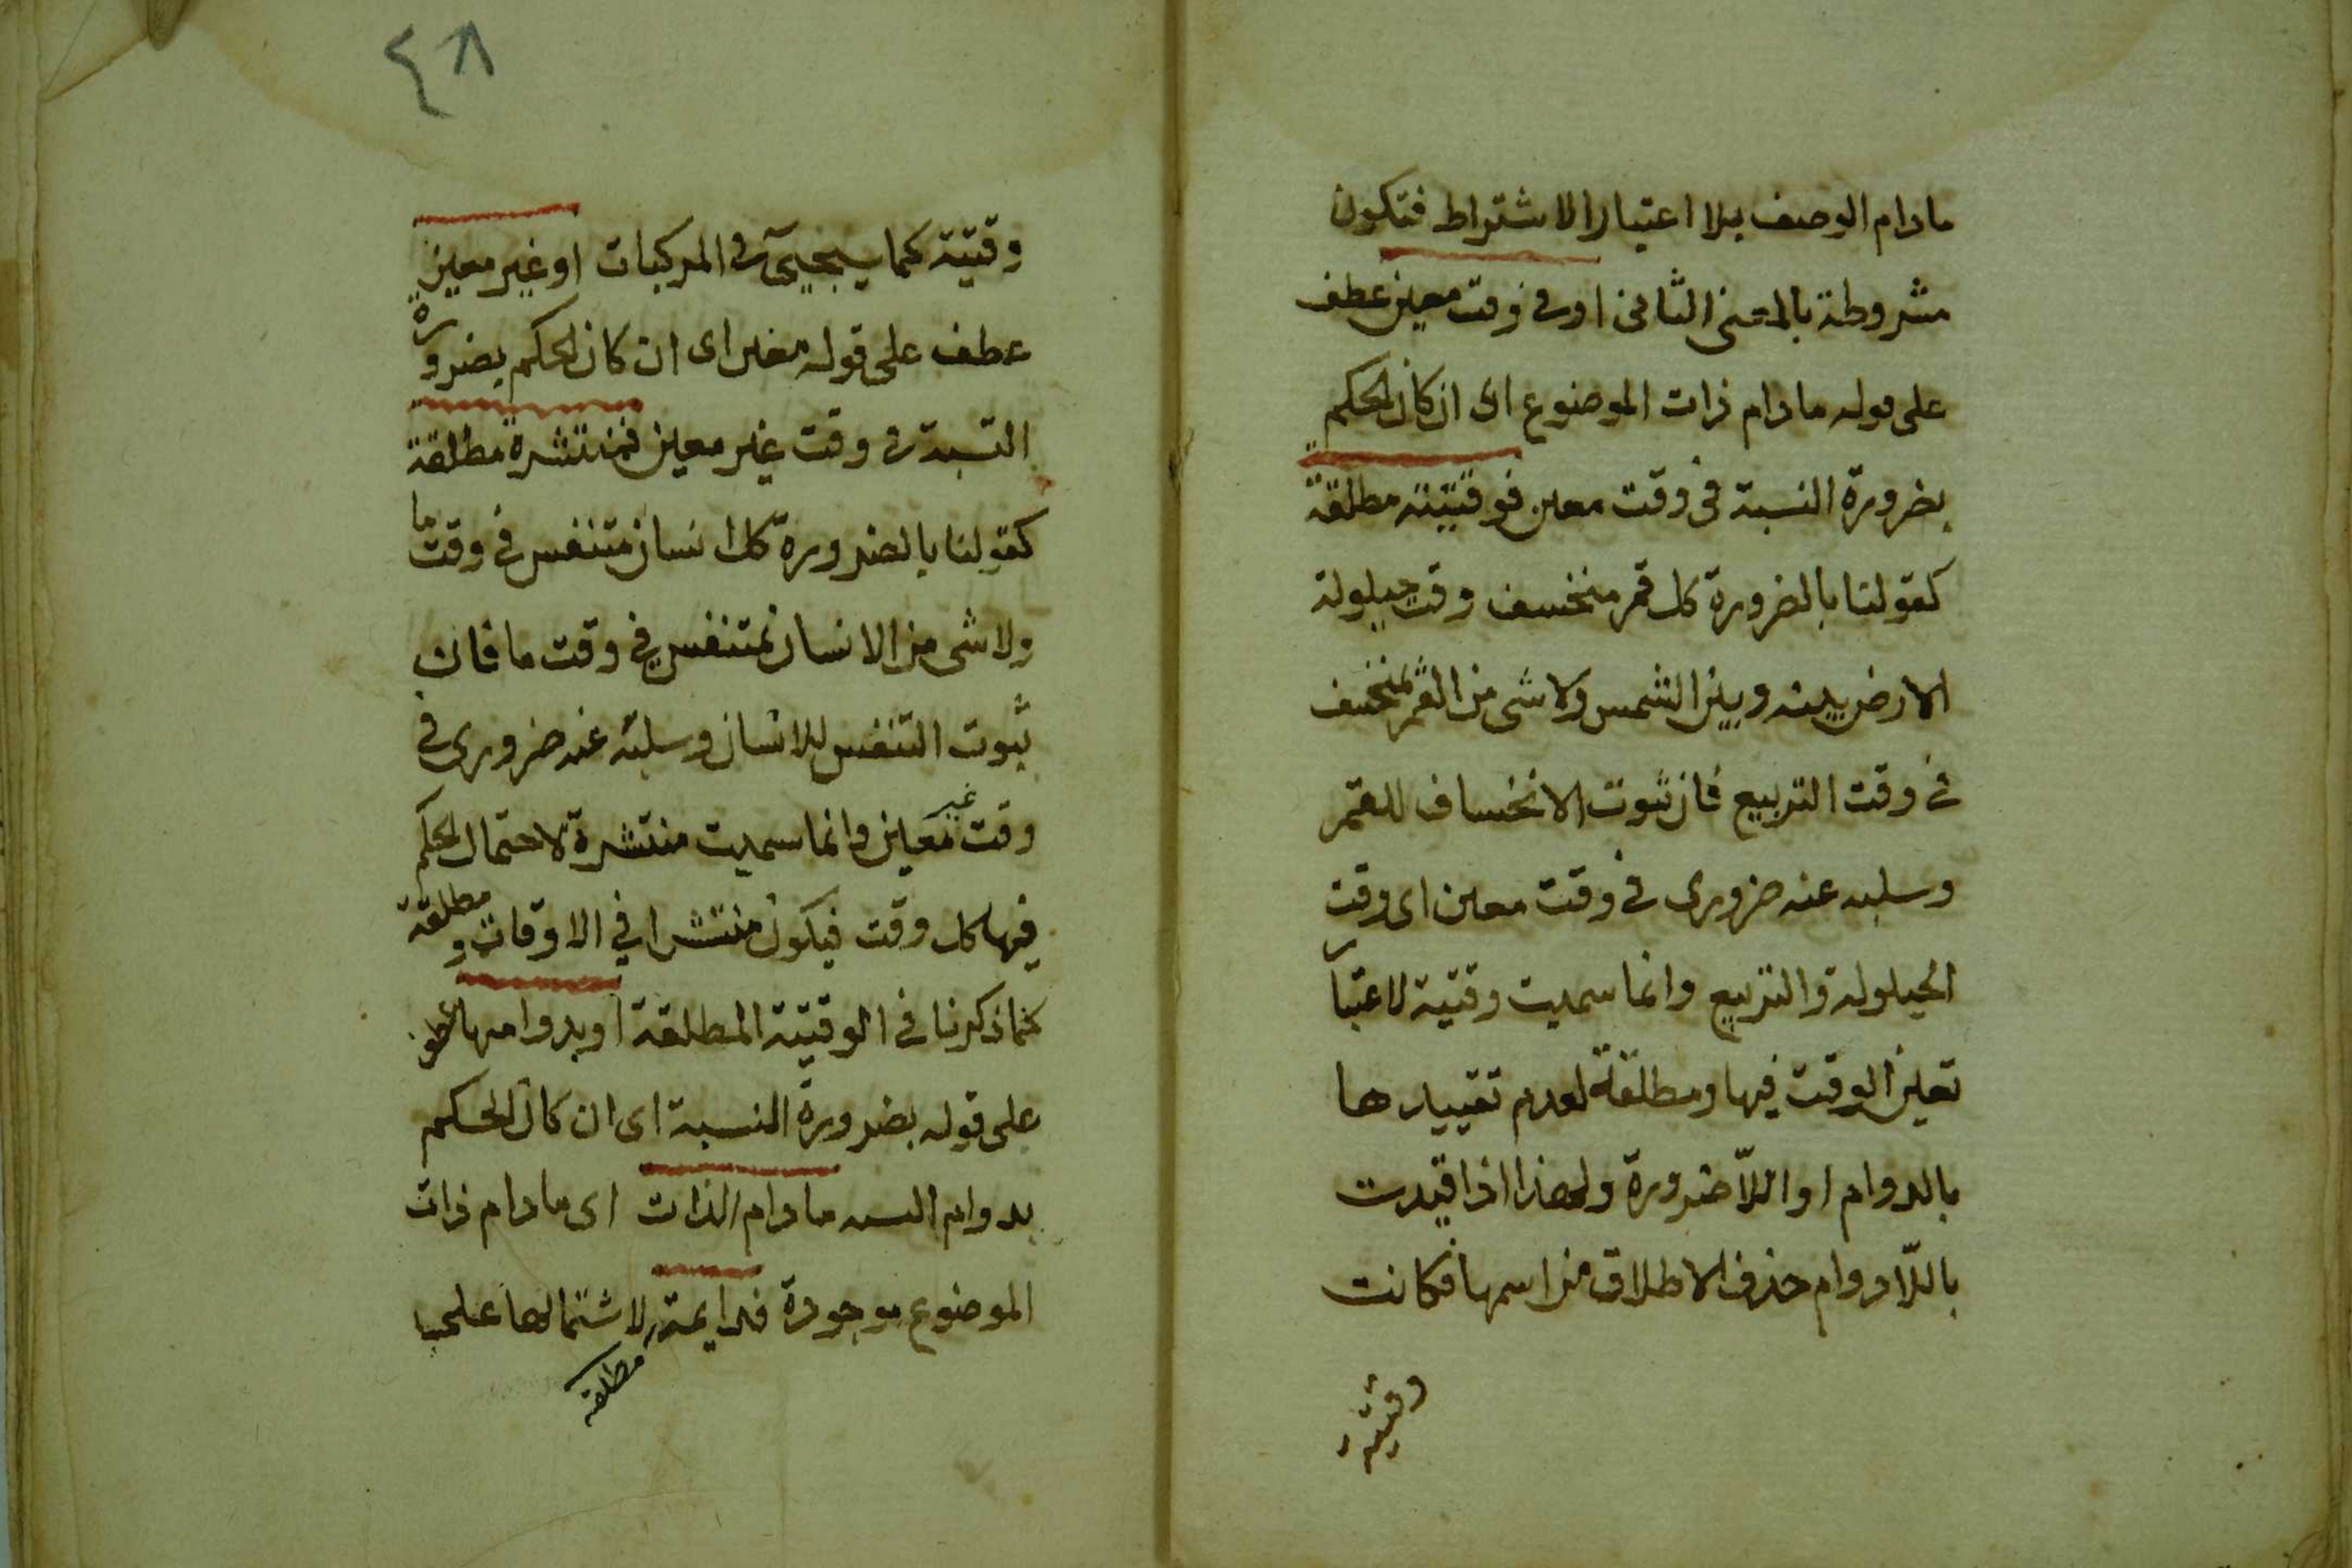 مادام الوصف بلا اعتبار الاشتراط فتكون
مشروطة بالمعنى الثانى او فى وقت معين عطف
على قوله مادام ذات الموضوع اى ان كان الحكم
بضرورة النسبة فى وقت معين فوقتية مطلقة
كقولنا بالضرورة كل قمر منخسف وقت حيلولة
الارض بينه وبين الشمس ولا شى من القمر بمنخسف
فى وقت التربيع فان ثبوت الانخساف للقمر
وسلبه عنه ضرورى فى وقت معين اى وقت
الحيلولة والتربيع وانما سميت وقتية لاعتبار
تعين الوقت فيها ومطلقة لعدم تقييدها
بالدوام او اللّاضرورة ولهذا اذا قيدت
باللّادوام حذف الاطلاق من اسمها فكانت
وقتية
٤٨
وقتية كما سيجيئ فى المركبات او غير معين
عطف على قوله معين اى ان كان الحكم بضرورة
النسبة فى وقت غير معين فمنتشرة مطلقة
كقولنا بالضرورة كل انسان متنفس فى وقت ما
ولا شى من الانسان بمتنفس فى وقت ما فان
ثبوت التنفس للانسان وسلبه عنه ضرورى فى
وقت غير معين وانما سميت منتشرة لاحتمال الحكم
فيها كل وقت فيكون منتشرا فى الاوقات ومطلقة
كما ذكرنا فى الوقتية المطلقة او بدوامها عطف
على قوله بضرورة النسبة اى ان كان الحكم
بدوام النسبة مادام الذات اى مادام ذات
الموضوع موجودة فدايمة مطلقة لاشتمالها على